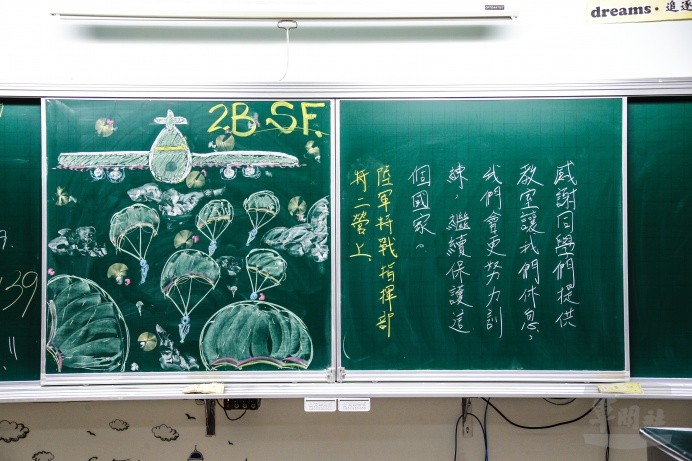 dreams · 追逐
2B.SF.
感謝同學們提供
教室讓我們休息,
我們會更努力訓
練,繼續保護這
個國家。
陸軍特戰指揮部
特二營上
39
軍聞社